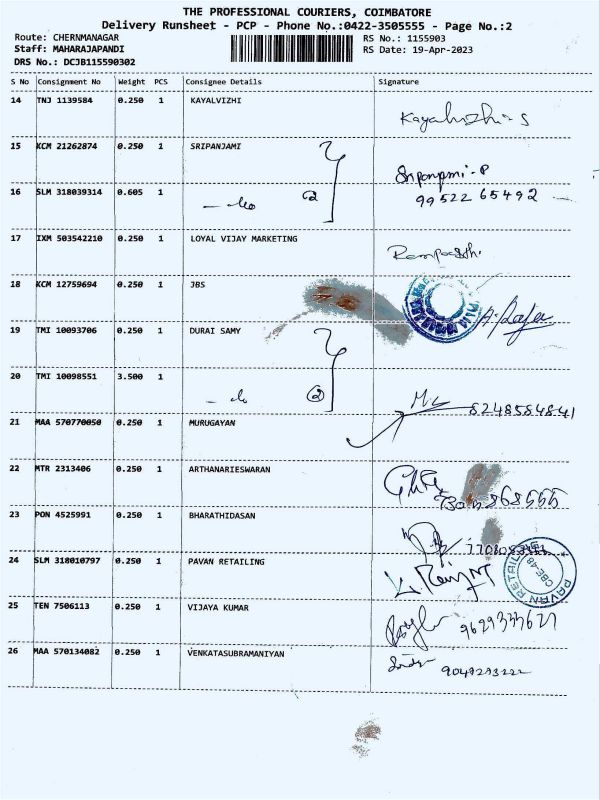 THE PROFESSIONAL COURIERS, COIMBATORE
Delivery Runsheet - PCP - Phone No.:0422-3505555 - Page No.:2
Route: CHERNMANAGAR RS No.: 1155903
Staff: MAHARAJAPANDI RS Date: 19-Apr-2023
DRS No.: DCJB115590302
S No Consignment No Weight PCS Consignee Details Signature
14 TNJ 1139584 0.250 1 KAYALVIZHI
Kayalvizhi-S
15 KCM 21262874 0.250 1 SRIPANJAMI
Sripanjami-P
16 SLM 318039314 0.605 1
2 99522 65492
17 IXM 503542210 0.250 1 LOYAL VIJAY MARKETING
18 KCM 12759694 0.250 1 JBS
A. Raja
19 TMI 10093706 0.250 1 DURAI SAMY
20 TMI 10098551 3.500 1
2
8248584841
21 MAA 570770050 0.250 1 MURUGAYAN
22 MTR 2313406 0.250 1 ARTHANARIESWARAN
23 PON 4525991 0.250 1 BHARATHIDASAN
24 SLM 318010797 0.250 1 PAVAN RETAILING
PAVAN RETAILING CBE-48
25 TEN 7506113 0.250 1 VIJAYA KUMAR
26 MAA 570134082 0.250 1 VENKATASUBRAMANIYAN
9049293222